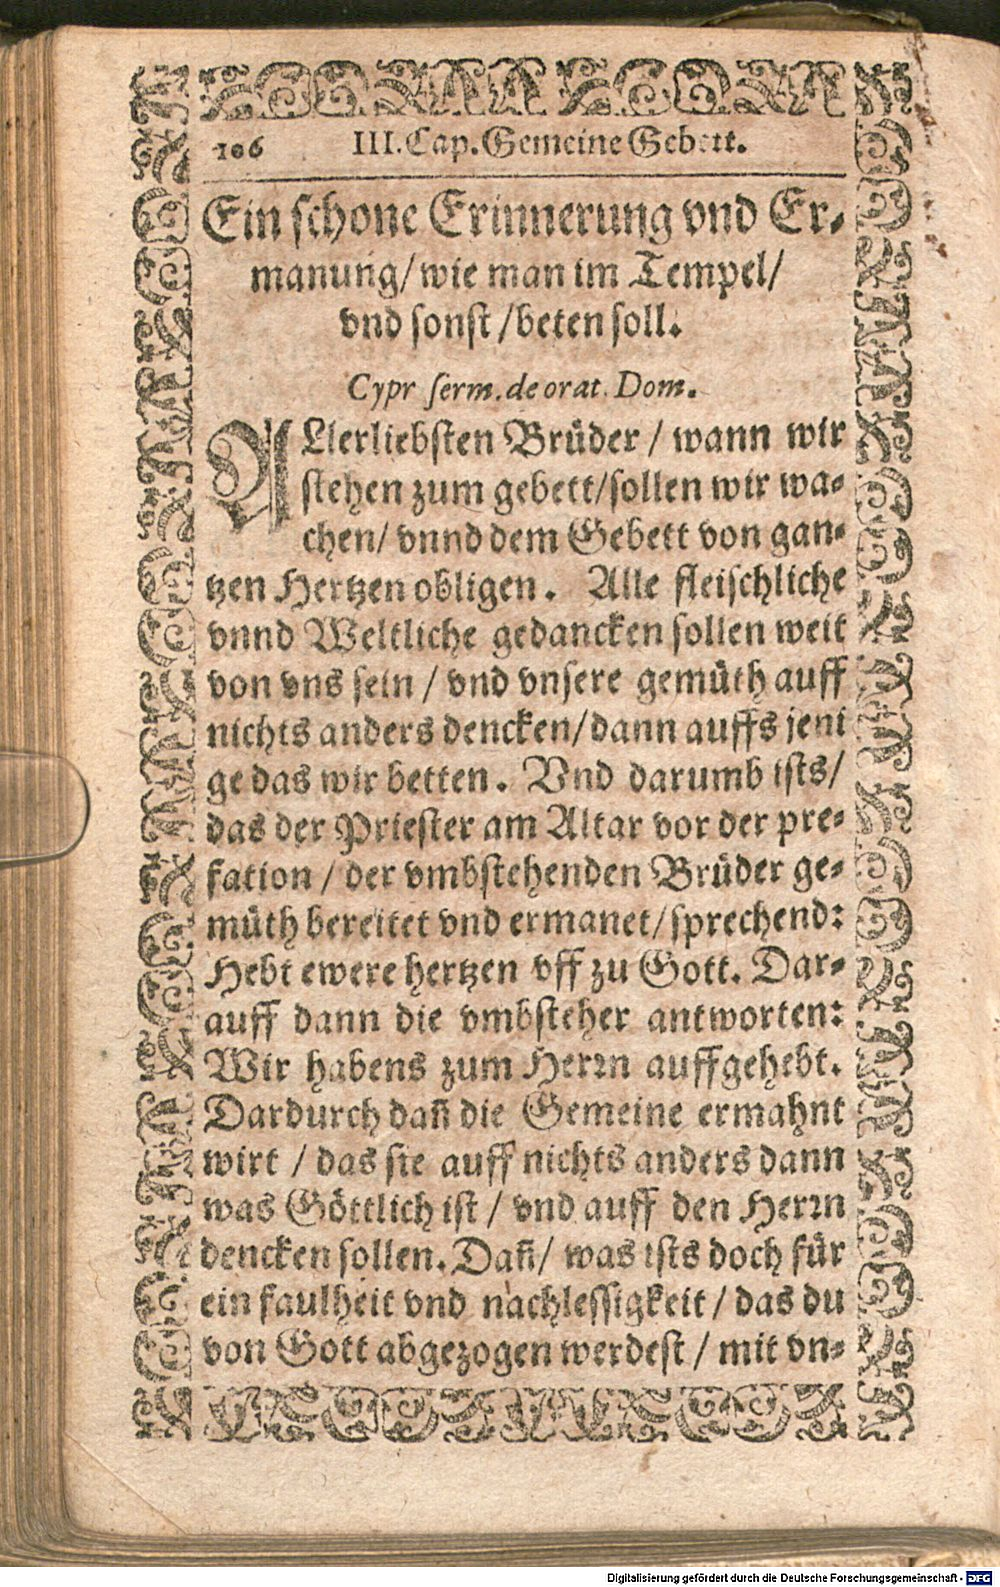 106 III. Cap. Gemeine Gebett.
Ein schone Erinnerung vnd Er-
manung/ wie man im Tempel/
vnd sonst/ beten soll.
Cypr serm. de orat. Dom.
ALlerliebsten Brüder/ wann wir
stehen zum gebett/ sollen wir wa-
chen/ vnnd dem Gebett von gan-
tzen Hertzen obligen. Alle fleischliche
vnnd Weltliche gedancken sollen weit
von vns sein/ vnd vnsere gemüth auff
nichts anders dencken/ dann auffs jeni
ge das wir betten. Vnd darumb ists/
das der Priester am Altar vor der pre-
fation/ der vmbstehenden Brüder ge-
müth bereitet vnd ermanet/ sprechend:
Hebt ewere hertzen vff zu Gott. Dar-
auff dann die vmbsteher antworten:
Wir habens zum Herrn auffgehebt.
Dardurch dañ die Gemeine ermahnt
wirt/ das sie auff nichts anders dann
was Göttlich ist/ vnd auff den Herrn
dencken sollen. Dañ/ was ists doch für
ein faulheit vnd nachlessigkeit/ das du
von Gott abgezogen werdest/ mit vn-
Digitalisierung gefördert durch die Deutsche Forschungsgemeinschaft - DFG